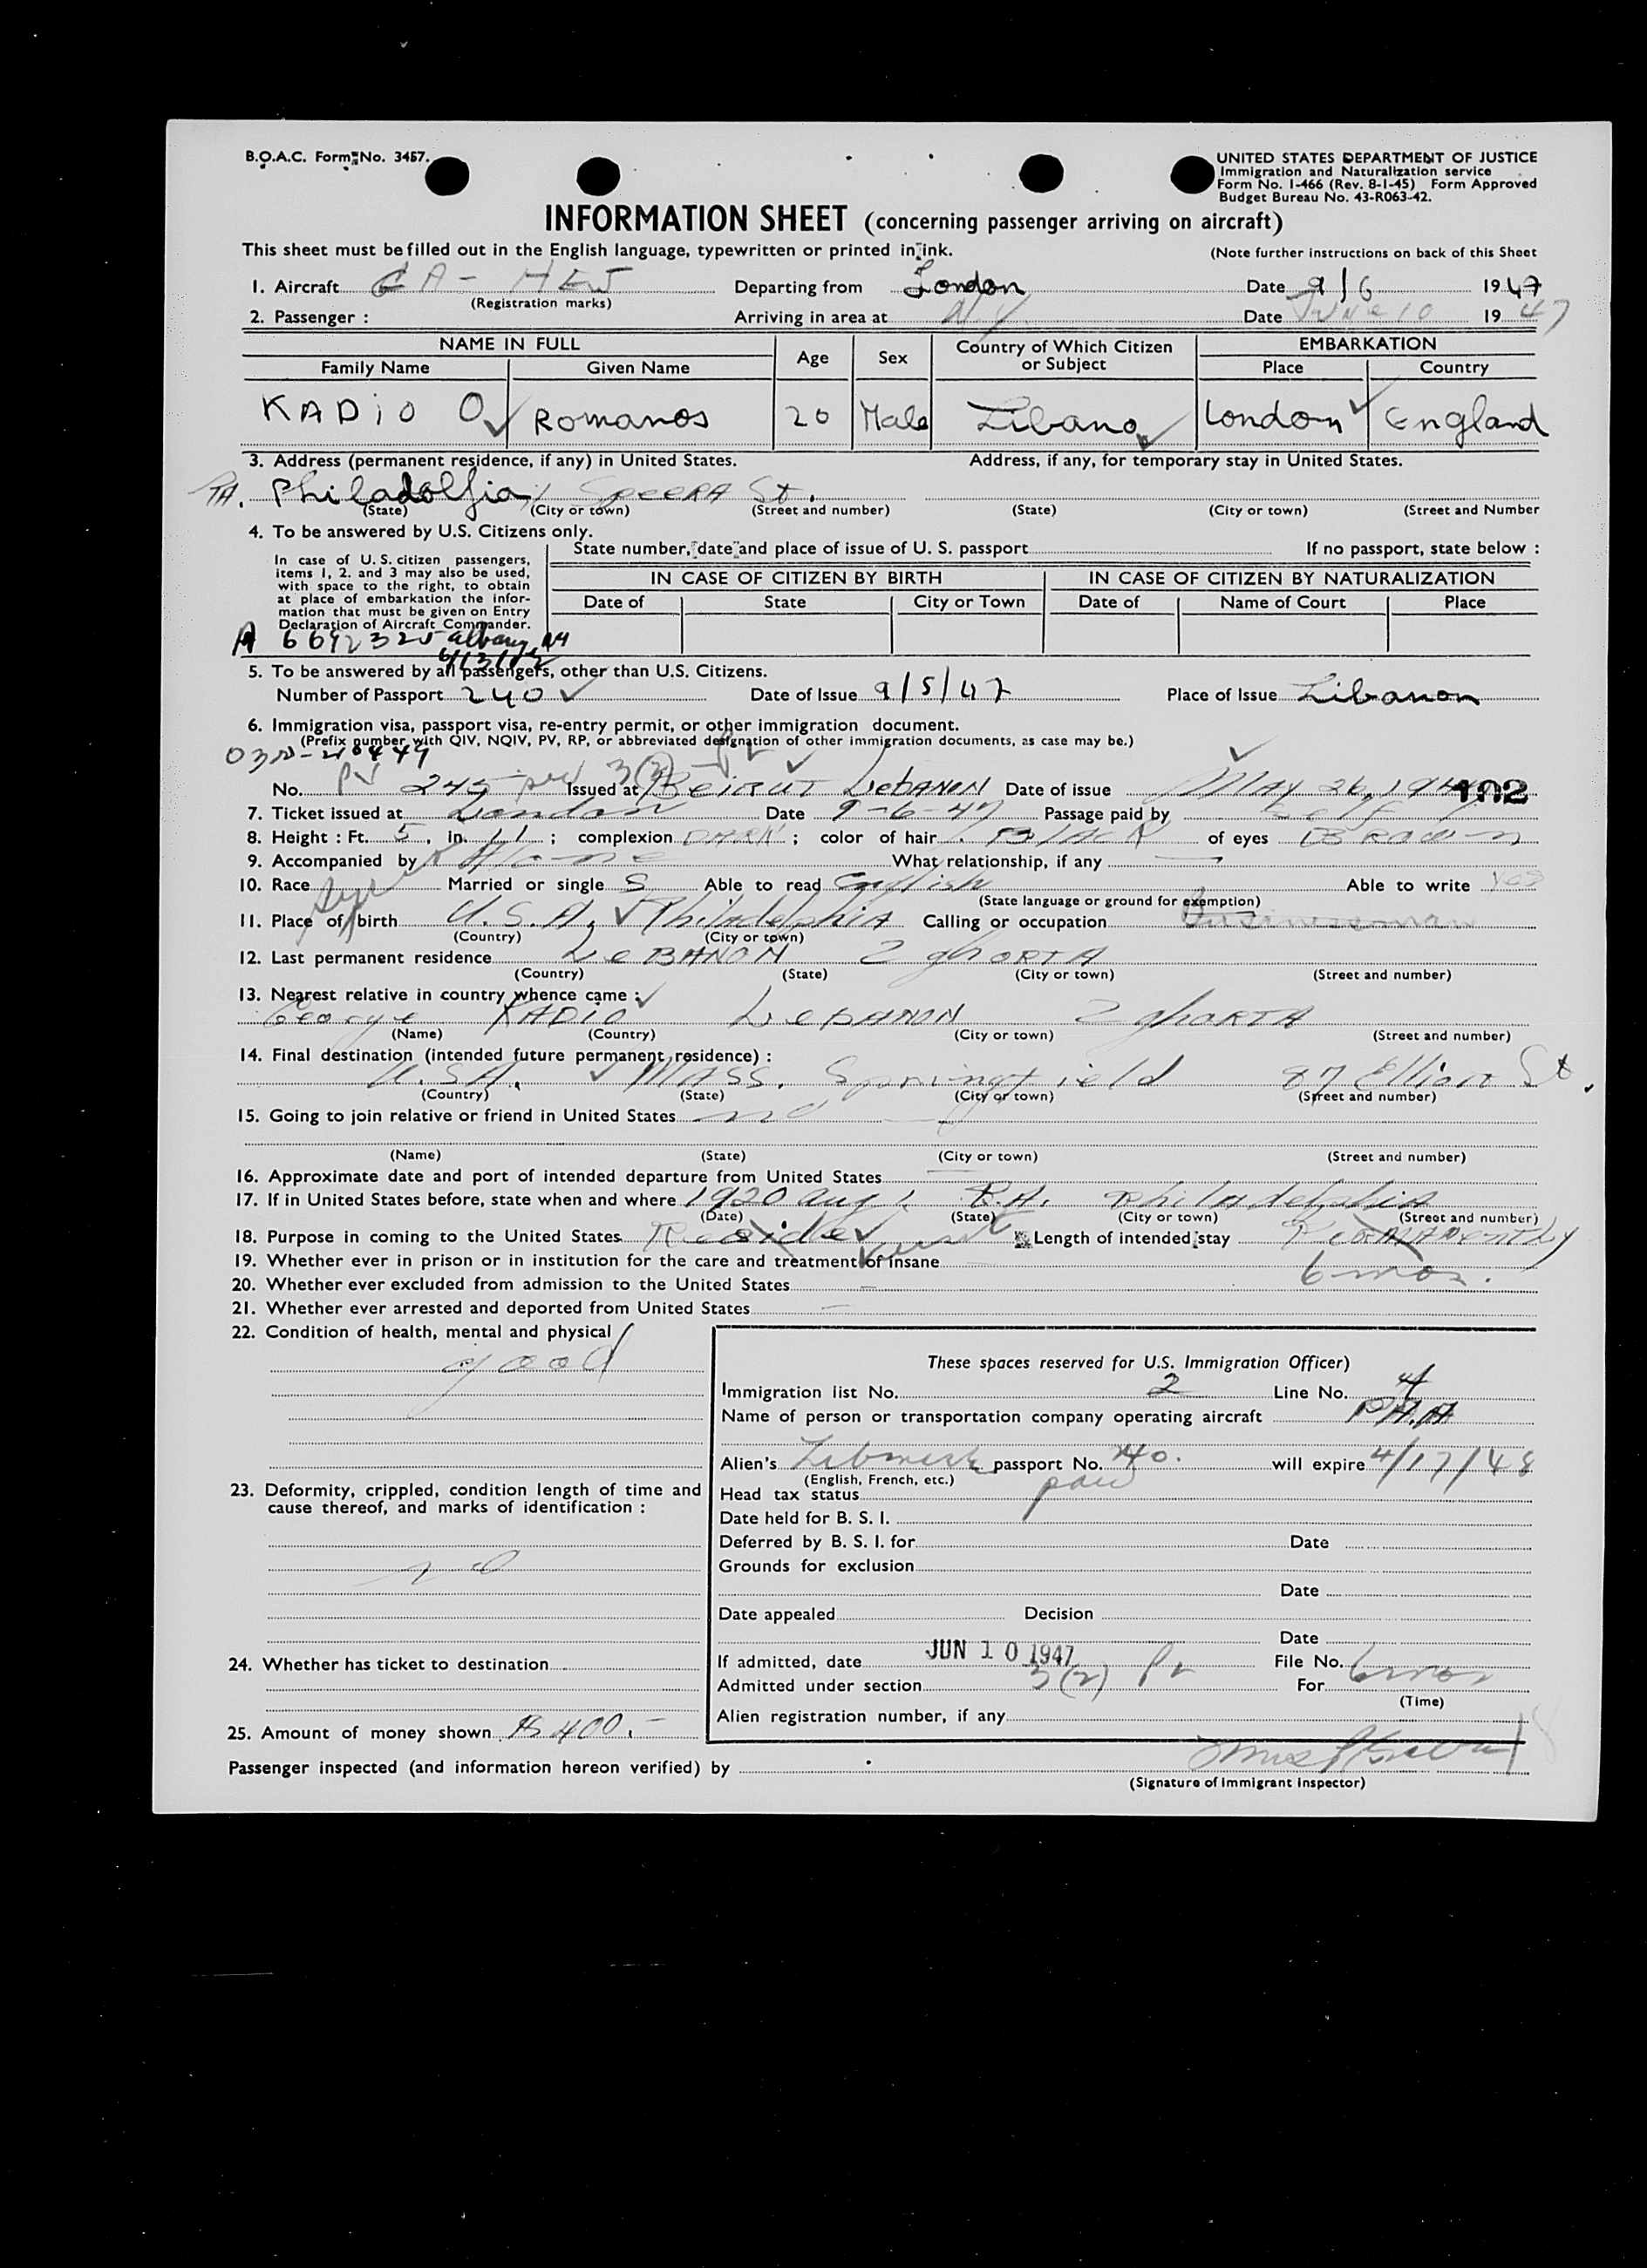 B.O.A.C. Form No. 3457.
UNITED STATES DEPARTMENT OF JUSTICE
Immigration and Naturalization service
Form No. I-466 (Rev. 8-1-45) Form Approved
Budget Bureau No. 43-R063-42.
INFORMATION SHEET (concerning passenger arriving on aircraft)
This sheet must be filled out in the English language, typewritten or printed in ink. (Note further instructions on back of this Sheet
1. Aircraft (Registration marks) Departing from London Date 9/6 1947
2. Passenger : Arriving in area at N.Y. Date June 10 1947
NAME IN FULL Age Sex Country of Which Citizen or Subject EMBARKATION
Family Name Given Name Place Country
KADiO O Romanos 20 Male Libano London England
3. Address (permanent residence, if any) in United States. Address, if any, for temporary stay in United States.
PA. Philadolfia St.
(State) (City or town) (Street and number) (State) (City or town) (Street and Number
4. To be answered by U.S. Citizens only.
In case of U.S. citizen passengers, items 1, 2. and 3 may also be used, with space to the right, to obtain at place of embarkation the information that must be given on Entry Declaration of Aircraft Commander.
State number, date and place of issue of U. S. passport If no passport, state below :
IN CASE OF CITIZEN BY BIRTH IN CASE OF CITIZEN BY NATURALIZATION
Date of State City or Town Date of Name of Court Place
A 6692325 albany
5. To be answered by all passengers, other than U.S. Citizens.
Number of Passport 240 Date of Issue 9/5/47 Place of Issue Libanon
6. Immigration visa, passport visa, re-entry permit, or other immigration document.
(Prefix number with QIV, NQIV, PV, RP, or abbreviated designation of other immigration documents, as case may be.)
No. PV 245 3(2) Issued at Beirut Lebanon Date of issue May 26, 194 102
7. Ticket issued at London Date 9-6-47 Passage paid by self
8. Height : Ft. 5, in. 11 ; complexion DARK ; color of hair BLACK of eyes BROWN
9. Accompanied by Alone What relationship, if any —
10. Race Married or single S Able to read English Able to write yes
(State language or ground for exemption)
11. Place of birth U.S.A. Philadelphia Calling or occupation Businessman
(Country) (City or town)
12. Last permanent residence LeBANON ZghORTA
(Country) (State) (City or town) (Street and number)
13. Nearest relative in country whence came :
George KADiO LeBANON ZghORTA
(Name) (Country) (City or town) (Street and number)
14. Final destination (intended future permanent residence) :
U.S.A. MASS. Springfield 87 Elliott St.
(Country) (State) (City or town) (Street and number)
15. Going to join relative or friend in United States no
(Name) (State) (City or town) (Street and number)
16. Approximate date and port of intended departure from United States
17. If in United States before, state when and where 1920 aug 1. P.A. Philadelphia
(Date) (State) (City or town) (Street and number)
18. Purpose in coming to the United States Reside visit Length of intended stay Permanently
6 mos.
19. Whether ever in prison or in institution for the care and treatment of insane
20. Whether ever excluded from admission to the United States —
21. Whether ever arrested and deported from United States —
22. Condition of health, mental and physical
good
These spaces reserved for U.S. Immigration Officer)
Immigration list No. 2 Line No. 4
Name of person or transportation company operating aircraft P.A.A
Alien's passport No. 240. will expire 4/17/48
(English, French, etc.)
Head tax status paid
Date held for B. S. I.
Deferred by B. S. I. for Date
Grounds for exclusion
Date
Date appealed Decision
Date
If admitted, date JUN 10 1947 File No.
Admitted under section 3(2) PV For 6 mos
(Time)
Alien registration number, if any
23. Deformity, crippled, condition length of time and cause thereof, and marks of identification :
no
24. Whether has ticket to destination
25. Amount of money shown $400.-
Passenger inspected (and information hereon verified) by
(Signature of Immigrant Inspector)